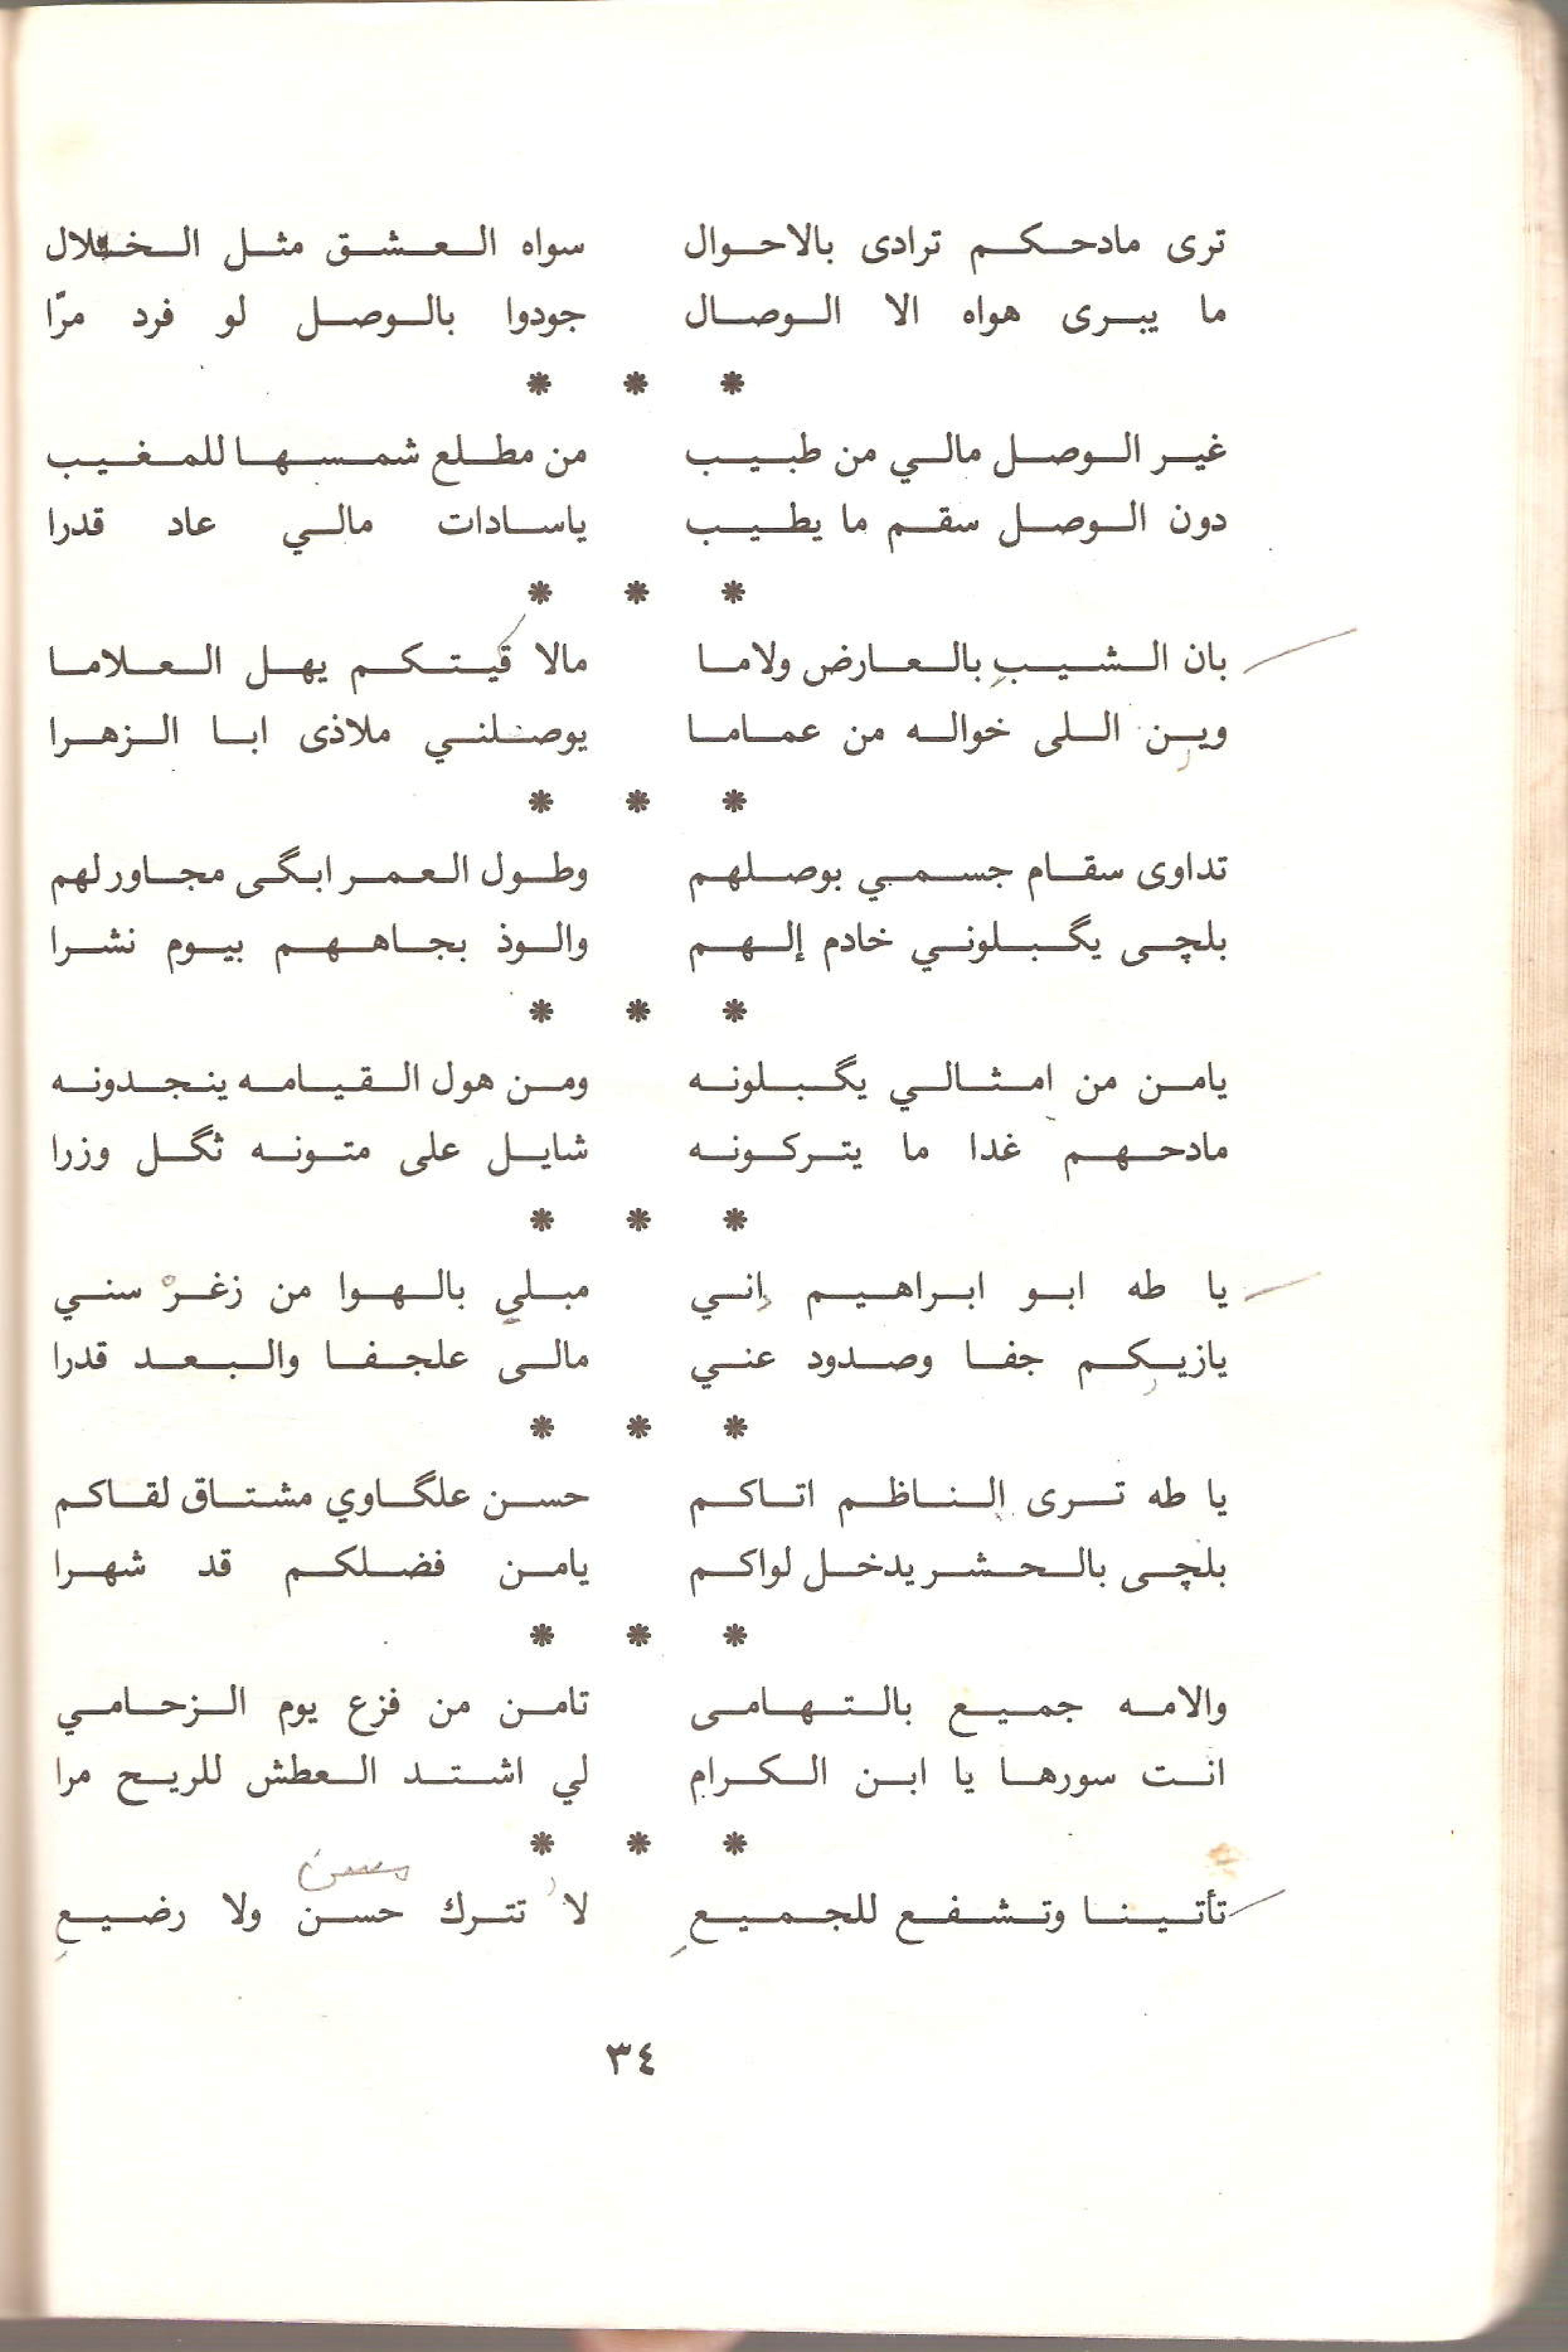 ترى مادحكم ترادى بالاحوال سواه العشق مثل الخلال
ما يبرى هواه الا الوصال جودوا بالوصل لو فرد مرّا
* * *
غير الوصل مالي من طبيب من مطلع شمسها للمغيب
دون الوصل سقم ما يطيب ياسادات مالي عاد قدرا
* * *
بان الشيب بالعارض ولاما مالا قيتكم يهل العلاما
وين اللى خواله من عماما يوصلني ملاذى ابا الزهرا
* * *
تداوى سقام جسمي بوصلهم وطول العمر ابگى مجاور لهم
بلچى يگبلوني خادم إلهم والوذ بجاههم بيوم نشرا
* * *
يامن من امثالي يگبلونه ومن هول القيامه ينجدونه
مادحهم غدا ما يتركونه شايل على متونه ثگل وزرا
* * *
يا طه ابو ابراهيم إني مبلي بالهوا من زغرْ سني
يازيكم جفا وصدود عني مالى علجفا والبعد قدرا
* * *
يا طه ترى الناظم اتاكم حسن علگاوي مشتاق لقاكم
بلچى بالحشر يدخل لواكم يامن فضلكم قد شهرا
* * *
والامه جميع بالتهامى تامن من فزع يوم الزحامي
انت سورها يا ابن الكرام لي اشتد العطش للريح مرا
* * *
حسن
تأتينا وتشفع للجميع لا تترك حسن ولا رضيع
٣٤